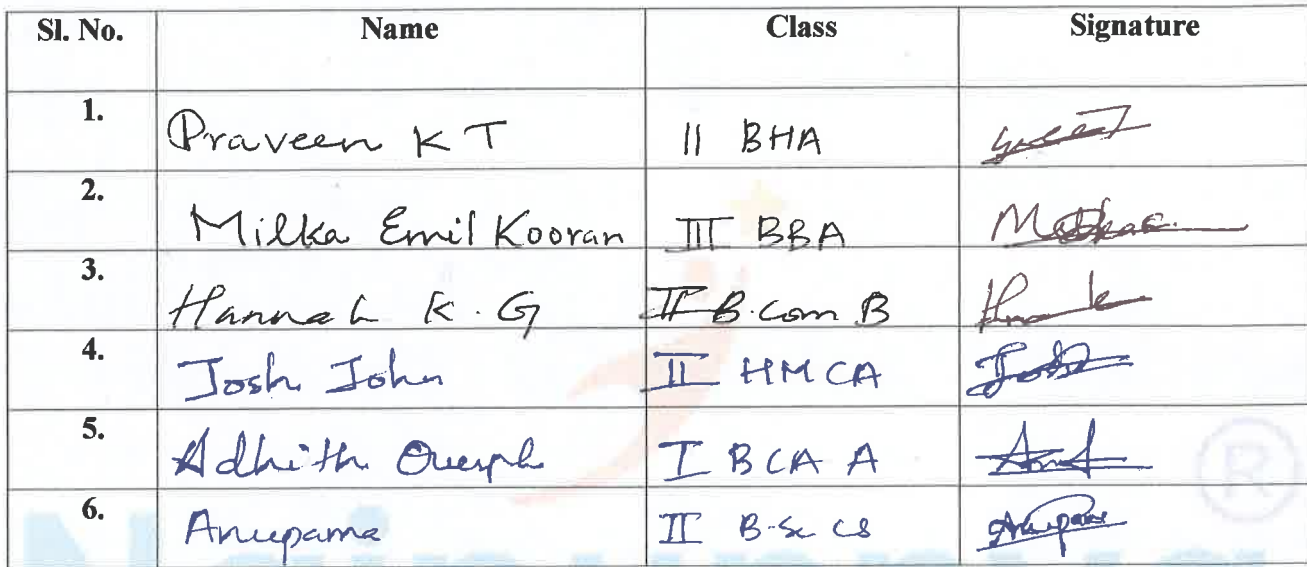 Sl. No. Name Class Signature
1. Praveen K T II BHA
2. Milka Emil Kooran III BBA
3. Hannah K. G II B.Com B
4. Josh John II HMCA Josh
5. Adhith Ouseph I BCA A
6. Anupama II B.Sc CS Anupama
®